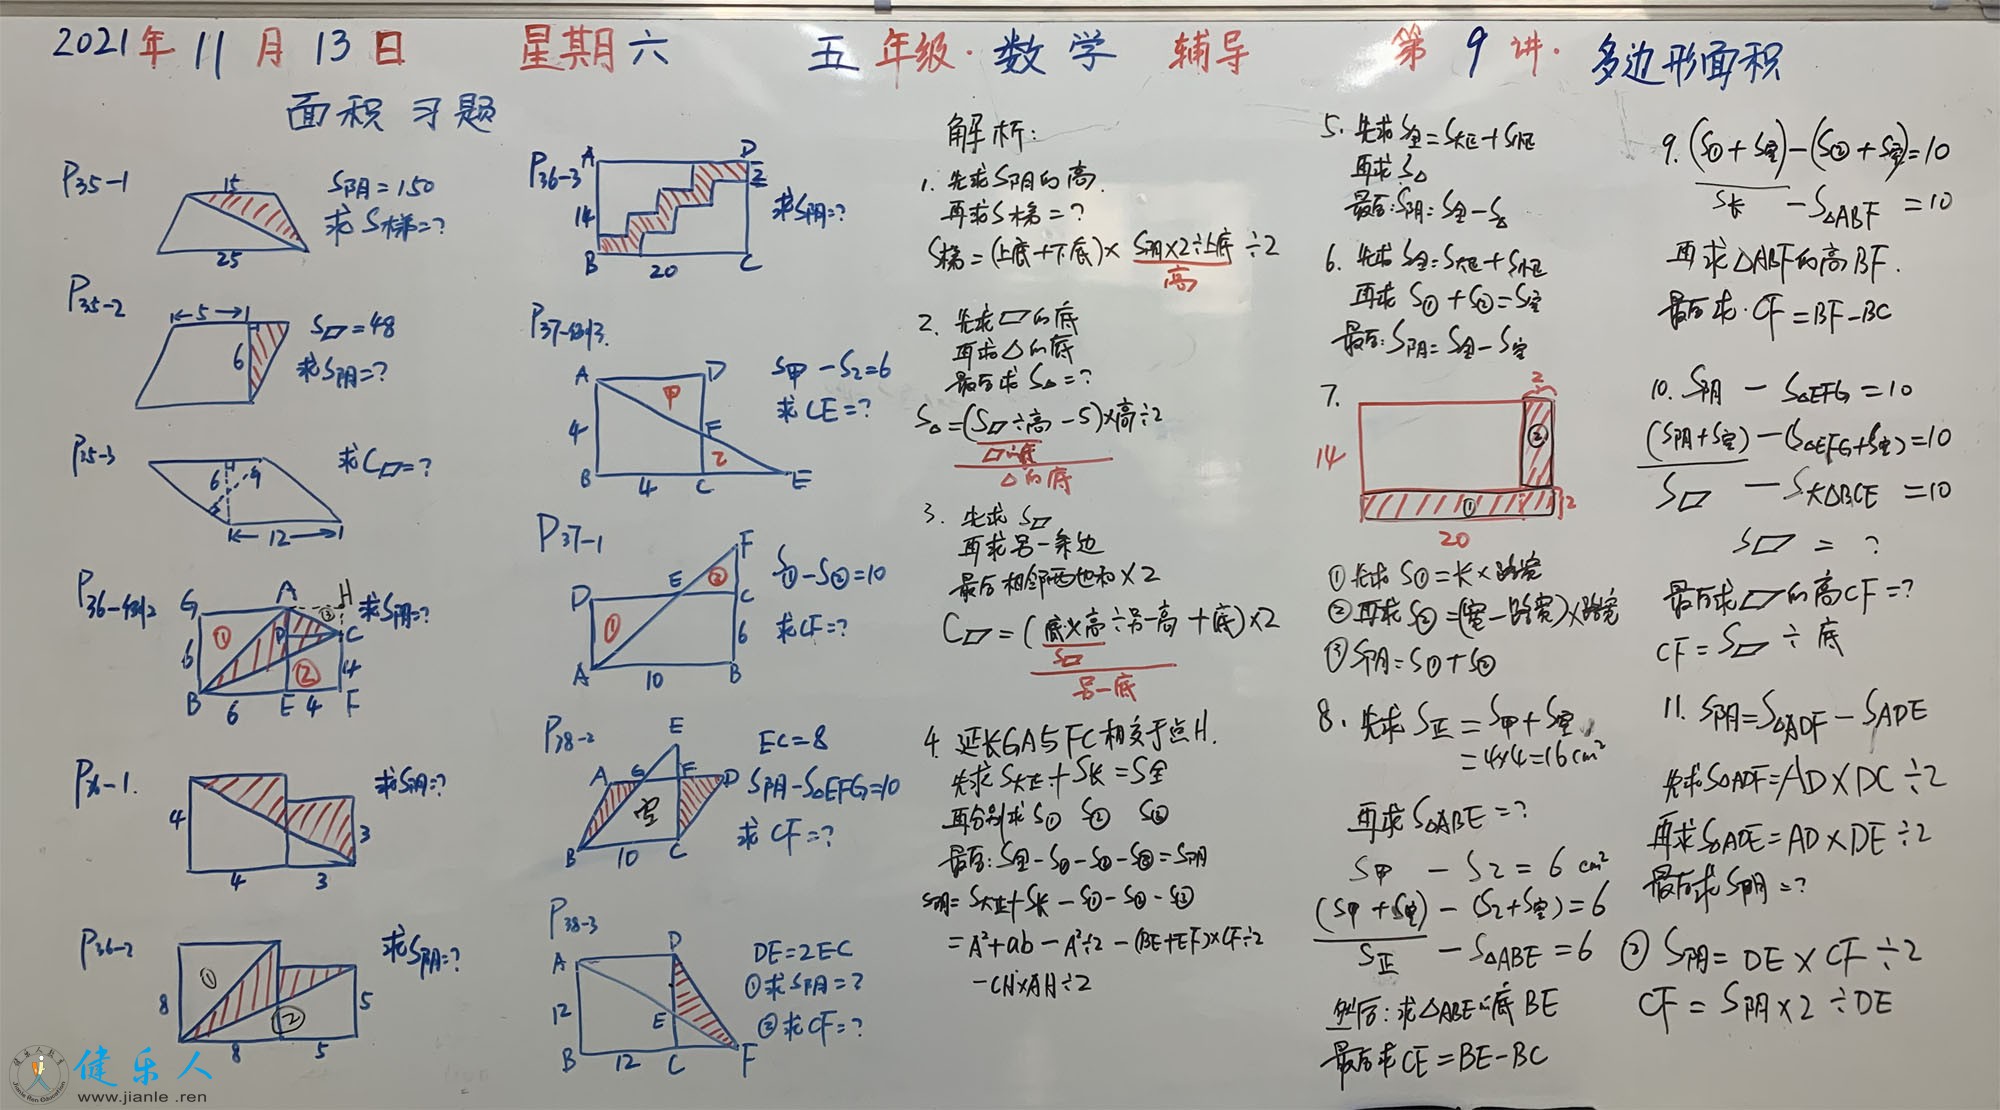 2021年11月13日 星期六 五年级·数学 辅导 第9讲·多边形面积
面积习题
P35-1
15
25
S阴=150
求S梯=?
P35-2
5
6
S▱=48
求S阴=?
P35-3
6
9
12
求C▱=?
P36-例2
G A H
① ③
D C
6 4
②
B 6 E 4 F
求S阴=?
P36-1.
4
3
4 3
求S阴=?
P36-2
①
8
②
5
8 5
求S阴=?
P36-3
A D
2
14
B 20 C
求S阴=?
P37-例3.
A D
甲
4
F
乙
B 4 C E
S甲-S乙=6
求CE=?
P37-1
F
E ②
D C
① 6
A 10 B
S①-S②=10
求CF=?
P38-2
E
A G F D
空
B 10 C
EC=8
S阴-S△EFG=10
求CF=?
P38-3
A D
12
E
B 12 C F
DE=2EC
①求S阴=?
②求CF=?
解析:
1. 先求S阴的高.
再求S梯=?
S梯=(上底+下底)×S阴×2÷上底÷2
高
2. 先求▱的底
再求△的底
最后求S△=?
S△=(S▱÷高-5)×高÷2
▱的底
△的底
3. 先求S▱
再求另一条边
最后相邻两边和×2
C▱=(底×高÷另一高+底)×2
S▱
另一底
4. 延长GA与FC相交于点H.
先求S大正+S长=S全
再分别求S① S② S③
最后:S全-S①-S②-S③=S阴
S阴=S大正+S长-S①-S②-S③
=A²+ab-A²÷2-(BE+EF)×CF÷2
-CH×AH÷2
5. 先求S全=S大正+S小正
再求S△
最后:S阴=S全-S△
6. 先求S全=S大正+S小正
再求S①+S②=S空
最后:S阴=S全-S空
7.
2
14
②
①
2
20
①先求S①=长×路宽
②再求S②=(宽-路宽)×路宽
③S阴=S①+S②
8. 先求S正=S甲+S空
=4×4=16cm²
再求S△ABE=?
S甲-S乙=6cm²
(S甲+S空)-(S乙+S空)=6
S正-S△ABE=6
然后:求△ABE的底BE
最后求CE=BE-BC
9. (S①+S空)-(S②+S空)=10
S长-S△ABF=10
再求△ABF的高BF.
最后求·CF=BF-BC
10. S阴-S△EFG=10
(S阴+S空)-(S△EFG+S空)=10
S▱-S大△BCE=10
S▱=?
最后求▱的高CF=?
CF=S▱÷底
11. S阴=S△ADF-SADE
先求S△ADF=AD×DC÷2
再求S△ADE=AD×DE÷2
最后求S阴=?
②S阴=DE×CF÷2
CF=S阴×2÷DE
健乐人
www.jianle.ren